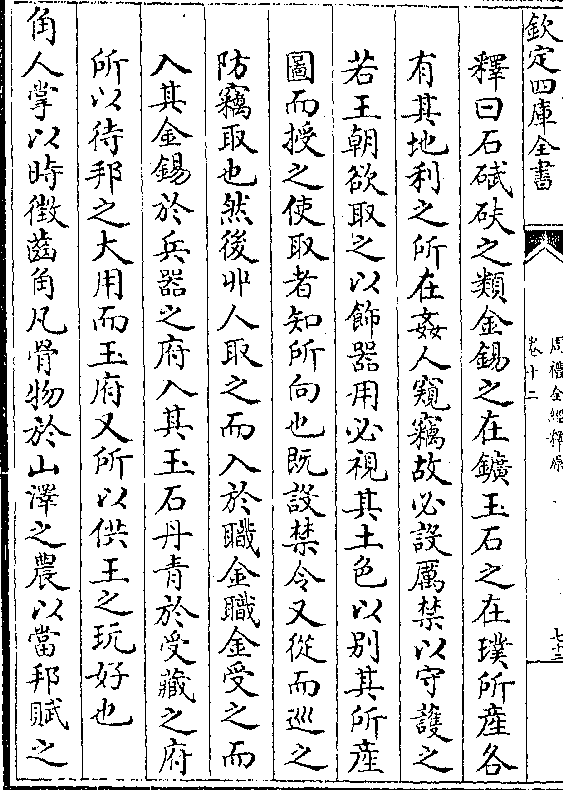 欽定四庫全書
周禮全經釋原
卷十二
七十二
釋曰石碔砆之類金錫之在鑛玉石之在璞所產各
有其地利之所在姦人窺竊故必設厲禁以守護之
若王朝欲取之以飾器用必視其土色以別其所產
圖而授之使取者知所向也既設禁令又從而巡之
防竊取也然後丱人取之而入於職金職金受之而
入其金錫於兵器之府入其玉石丹青於受藏之府
所以待邦之大用而玉府又所以供王之玩好也
角人掌以時徴齒角凡骨物於山澤之農以當邦賦之